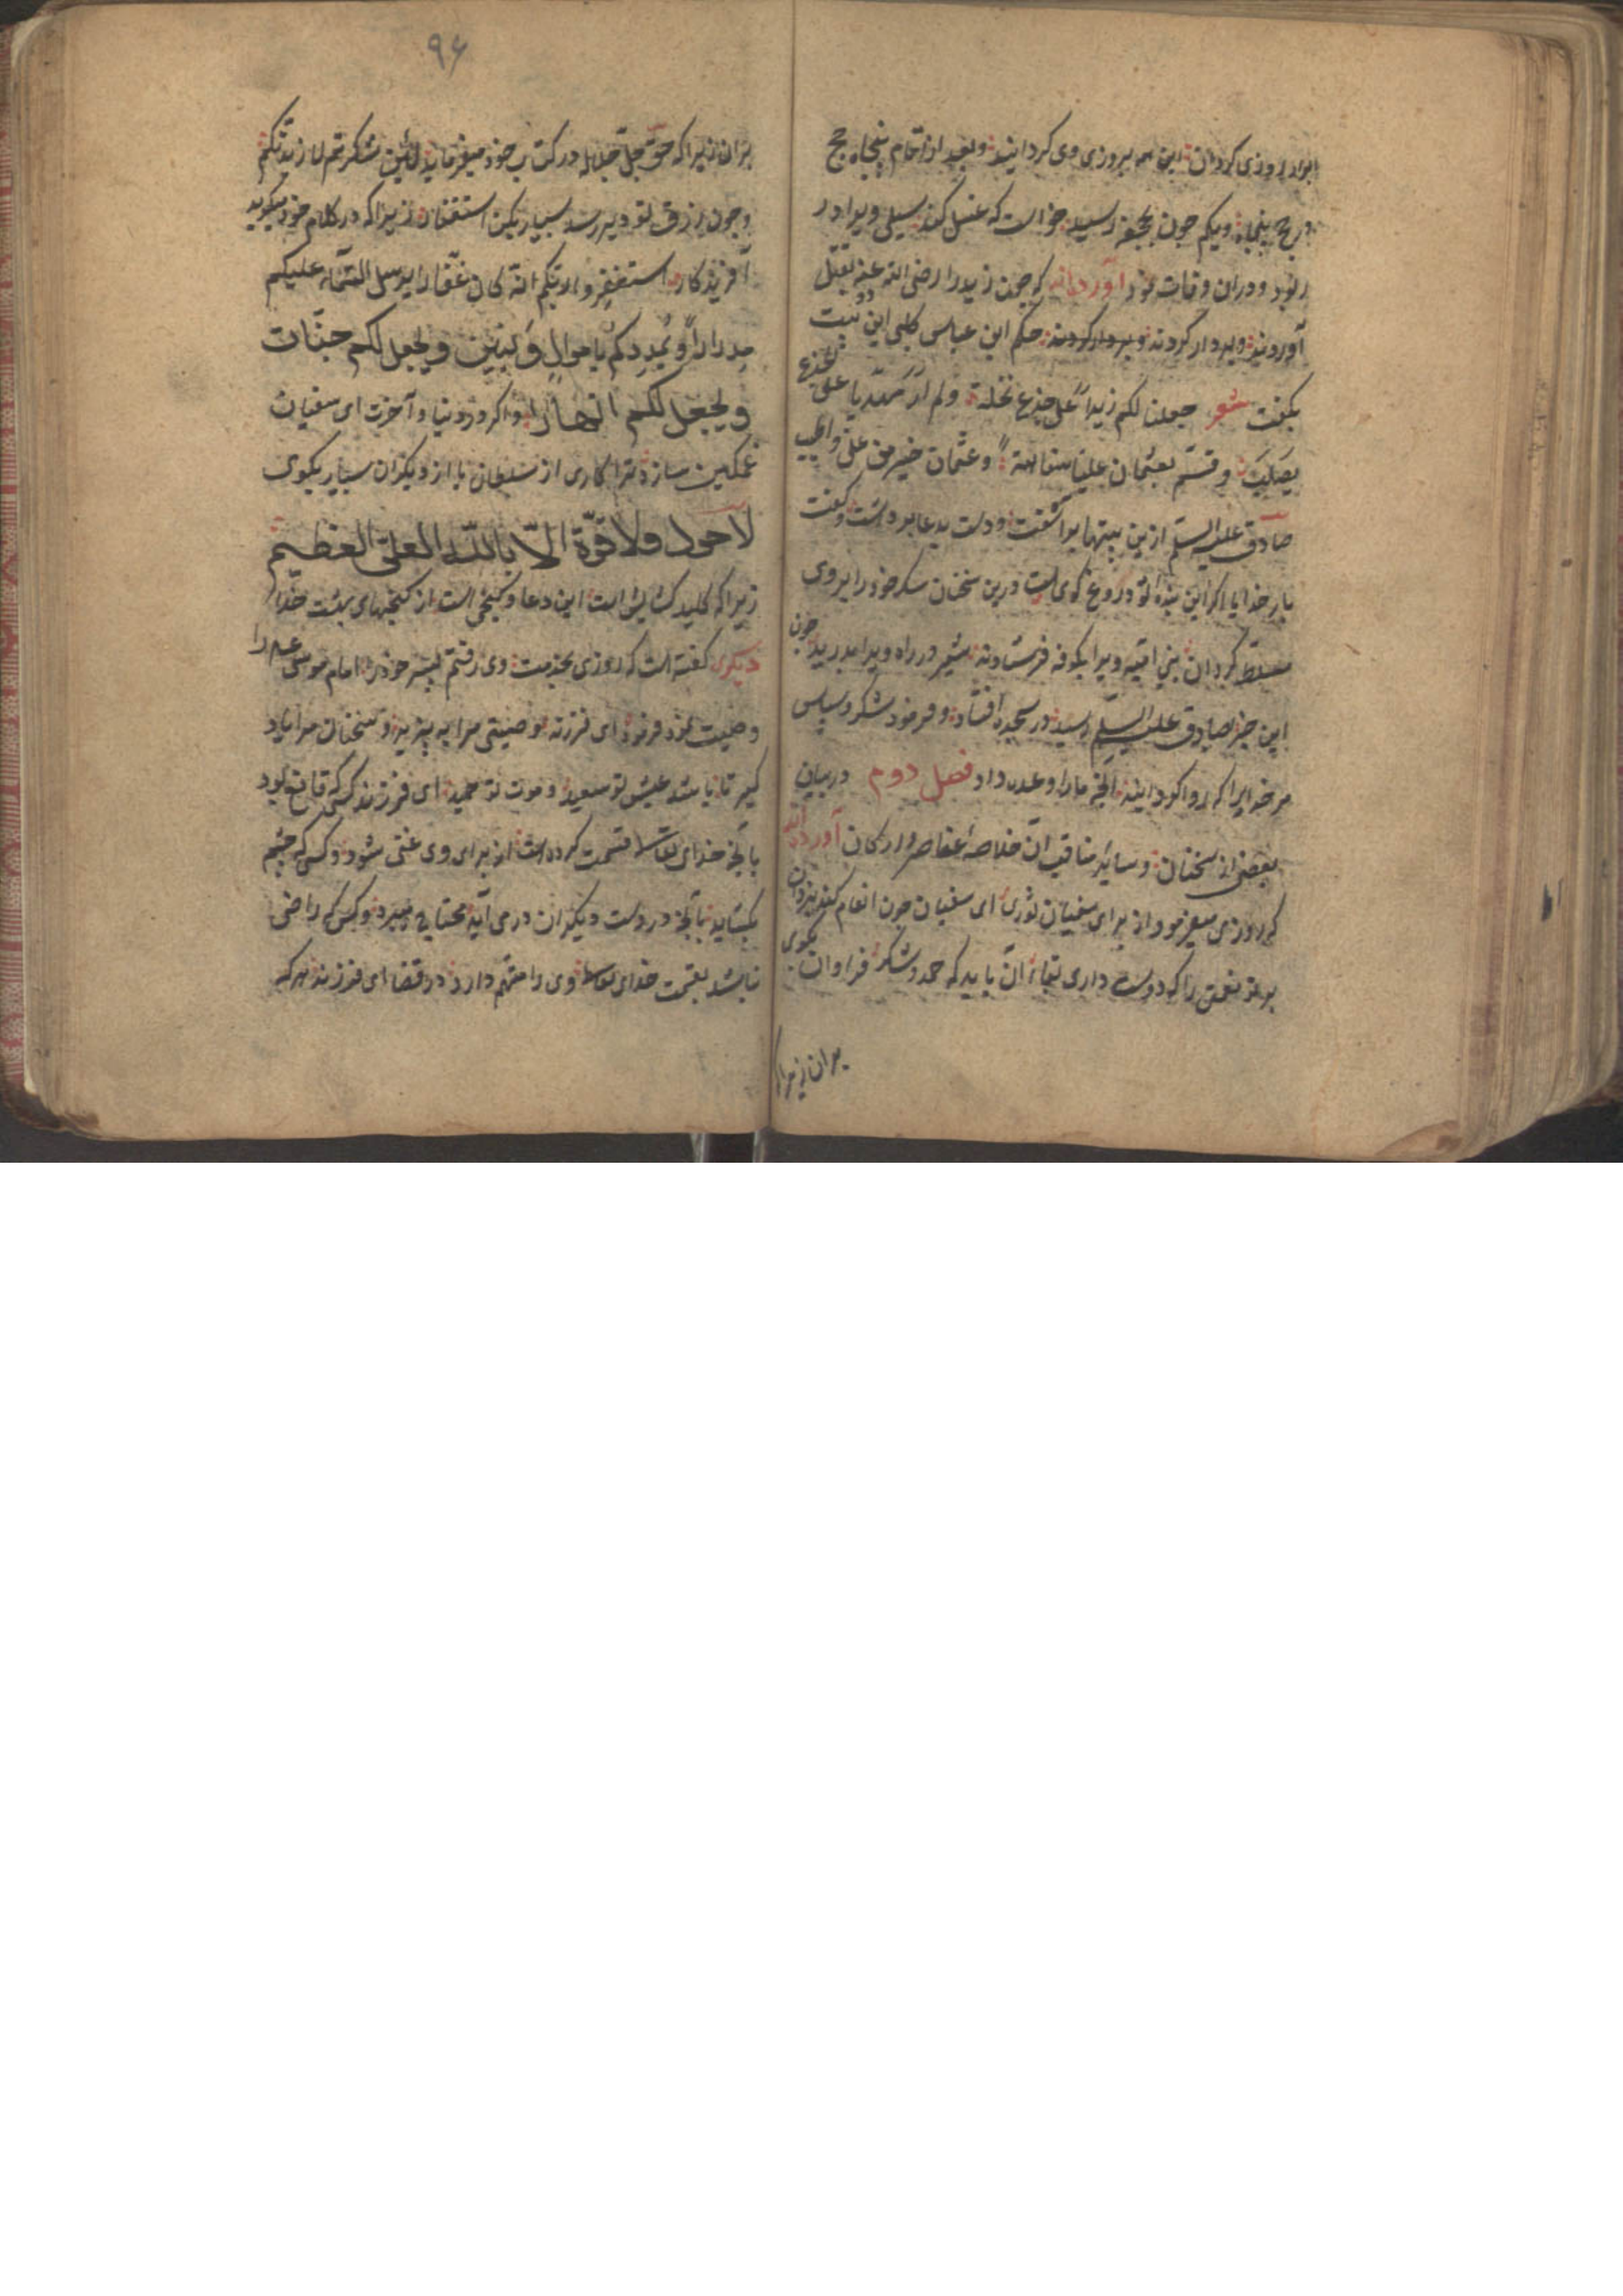 اورا روزی گردان این همه بروزی وی گردانید و بعد از اتمام پنجاه حج
در حج پنجاه و یکم چون بجحفه رسید خواست که غسل کند سیلی ویرا در
ربود و در آن وفات نمود آورده‌اند که چون زید را رضی الله عنه بقتل
آوردند و بر دار کردند حکم ابن عباس کلبی این دو بیت
بگفت شعر صلبنا لکم زیدا علی جذع نخلة ولم ار مهدیا علی الجذع
یصلب وقستم بعثمان علیا سفاهة وعثمان خیر من علی واطیب
صادق علیه السلم ازین بیتها بر آشفت و دست بدعا برداشت و گفت
بار خدایا اگر این بنده تو دروغ گوی است درین سخنان سگ خود را بر وی
مسلط گردان بنی امیه ویرا بکوفه فرستادند شیر در راه ویرا بدرید چون
این خبر بصادق علیه السلم رسید در سجده افتاد و فرمود شکر و سپاس
مر خدایرا که روا گردانید آنچه ما را وعده داد فصل دوم در بیان
بعضی از سخنان و سایر مناقب آن خلاصه عناصر و ارکان آورده‌اند
که روزی میفرمود از برای سفیان ثوری ای سفیان چون انعام کند یزدان
بر تو نعمتی را که دوست داری بقاء آن باید که حمد و شکر فراوان بگوی
بر آن زیرا
۹۶
بر آن زیرا که حق جل جلاله در کتاب خود میفرماید لئن شکرتم لازیدنکم
و چون رزق تو دیر رسد بسیار بکن استغفار زیرا که در کلام خود میگوید
آفریدگار استغفروا ربکم انه کان غفارا یرسل السماء علیکم
مدرارا ویمددکم باموال وبنین ویجعل لکم جنات
ویجعل لکم انهارا و اگر در دنیا و آخرت ای سفیان
غمگین سازد ترا کاری از سلطان یا از دیگران بسیار بگوی
لا حول ولا قوة الا بالله العلی العظیم
زیرا که کلید گشایش است این دعا و گنجی است از گنجهای بهشت خدا
دیگری گفته است که روزی بخدمت وی رفتم پسر خود را امام موسی علیه السلام را
وصیت نمود فرمود ای فرزند وصیتی مرا بپذیر و سخنان مرا یاد
گیر تا باشد عیش تو سعید و موت تو حمید ای فرزند کسی که قانع بود
بآنچه خدای تعالی قسمت کرده است از برای وی غنی شود و کسی که چشم
بگشاید بآنچه در دست دیگران در می آید محتاج میرد و کسی که راضی
نباشد بقسمت خدای تعالی وی را متهم دارد در قضا ای فرزند هر که